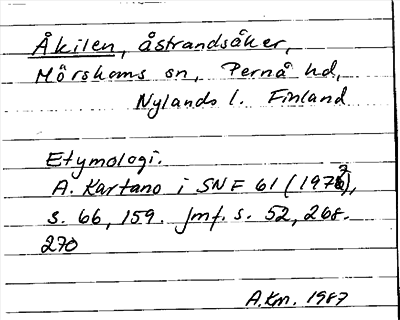 Åkilen, åstrandsåker,
Mörskoms sn, Pernå hd,
Nylands l. Finland
Etymologi.
A. Kartano i SNF 61 (1972),
s. 66, 159. Jmf. s. 52, 268.
270
A.Km. 1987